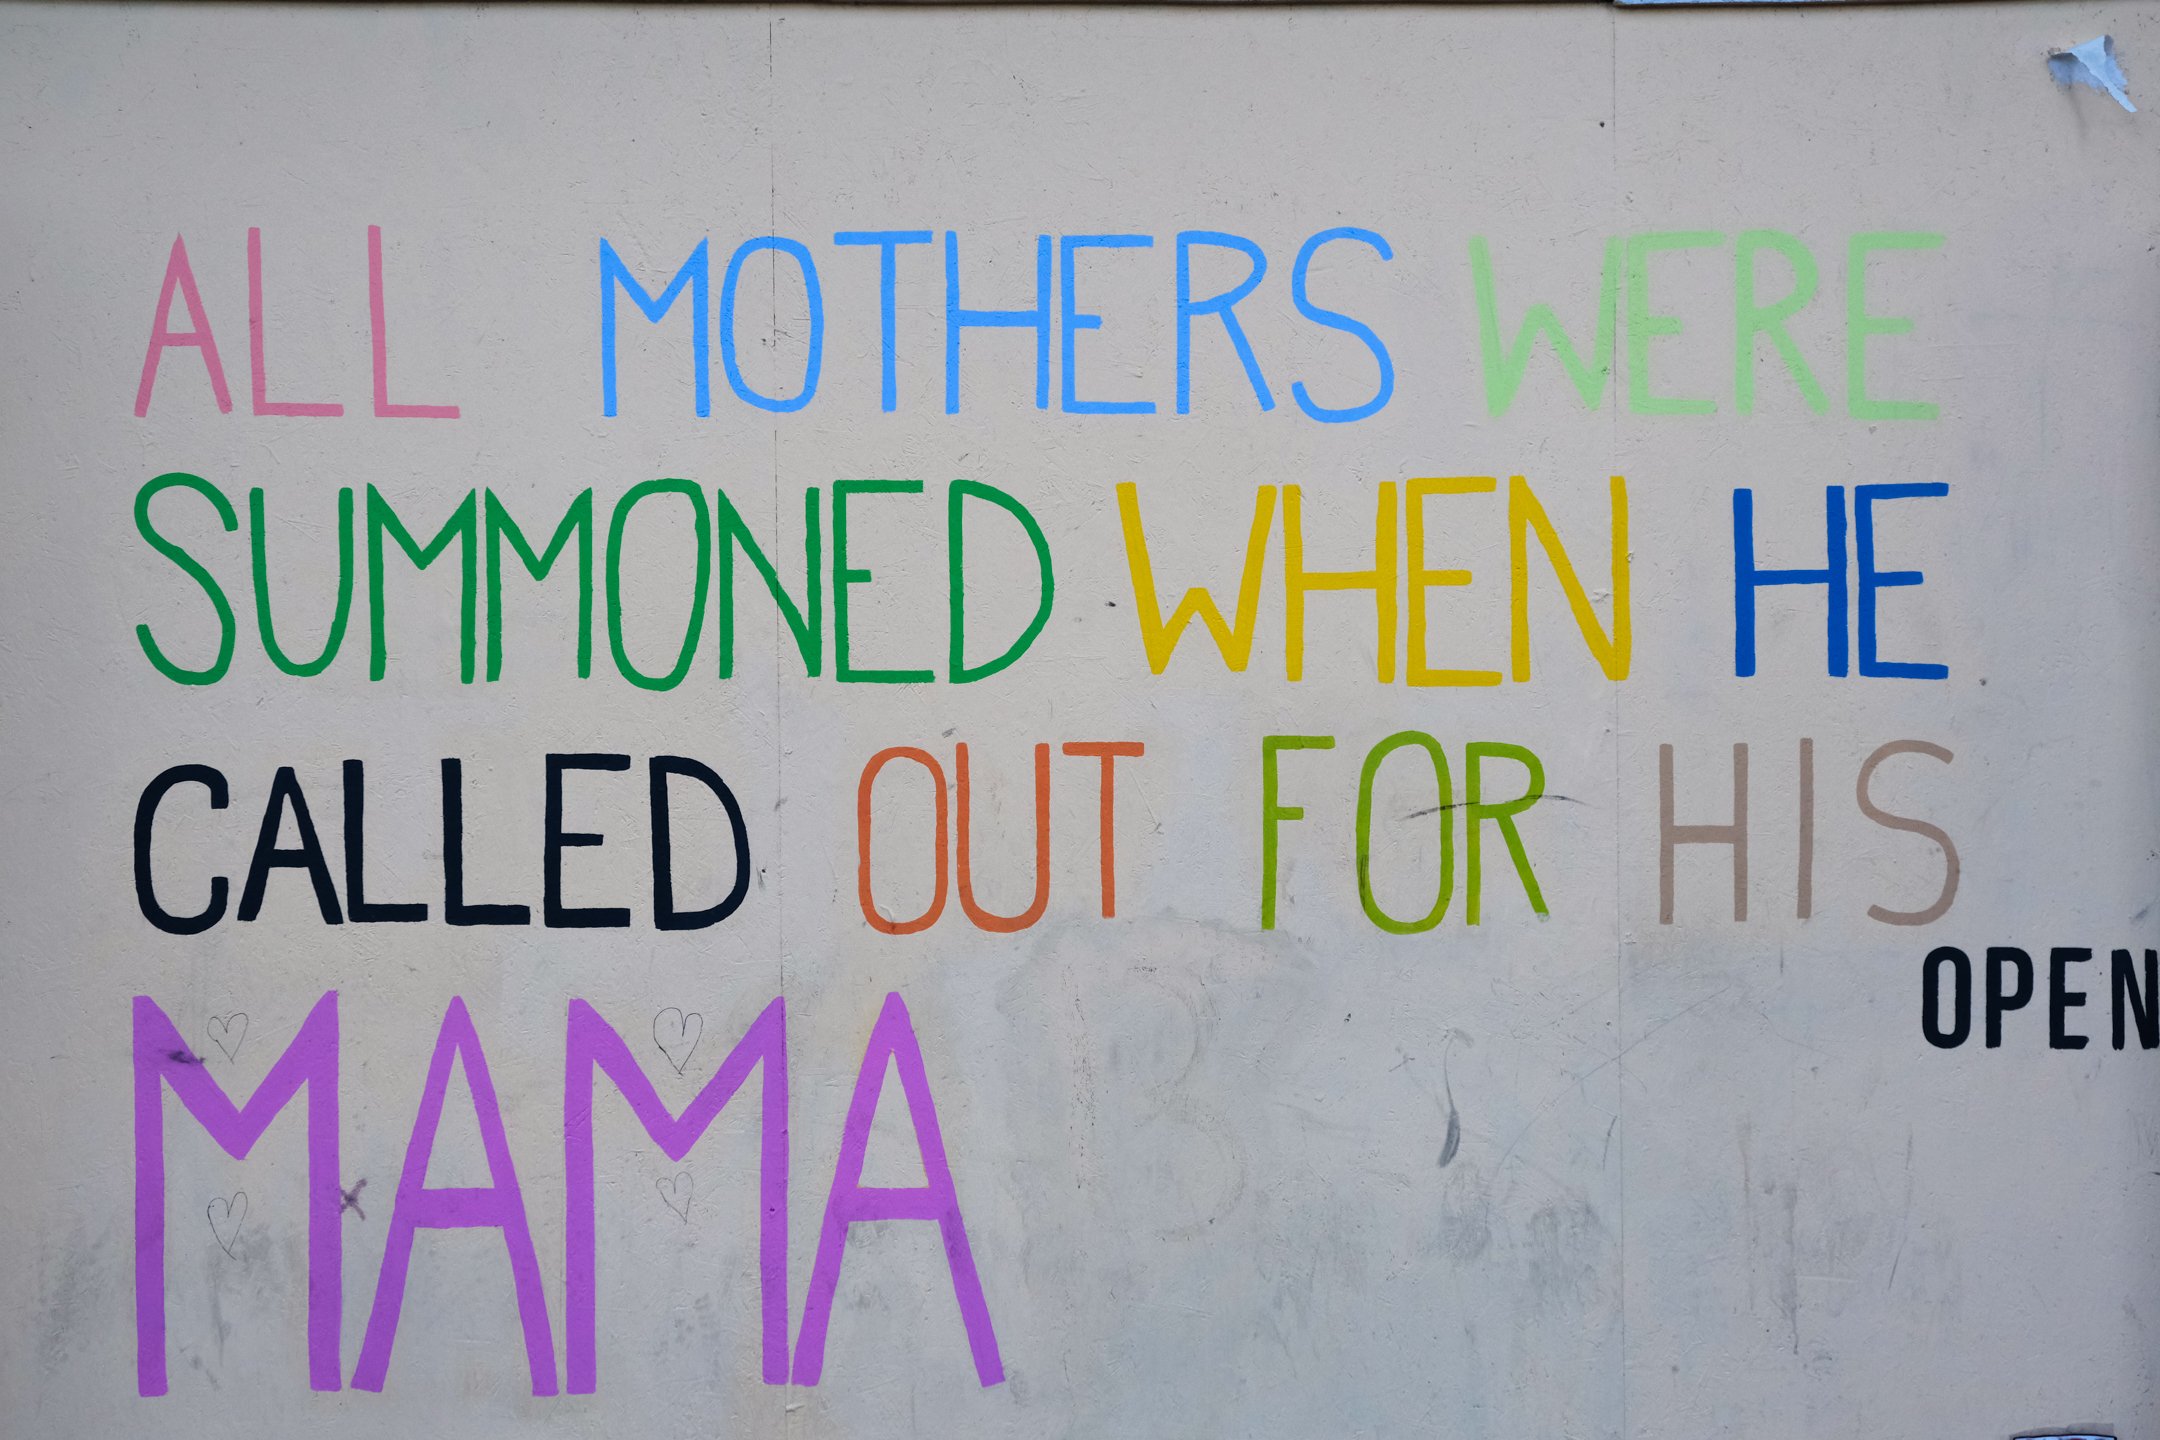 ALL MOTHERS WERE
SUMMONED WHEN HE
CALLED OUT FOR HIS
MAMA
OPEN